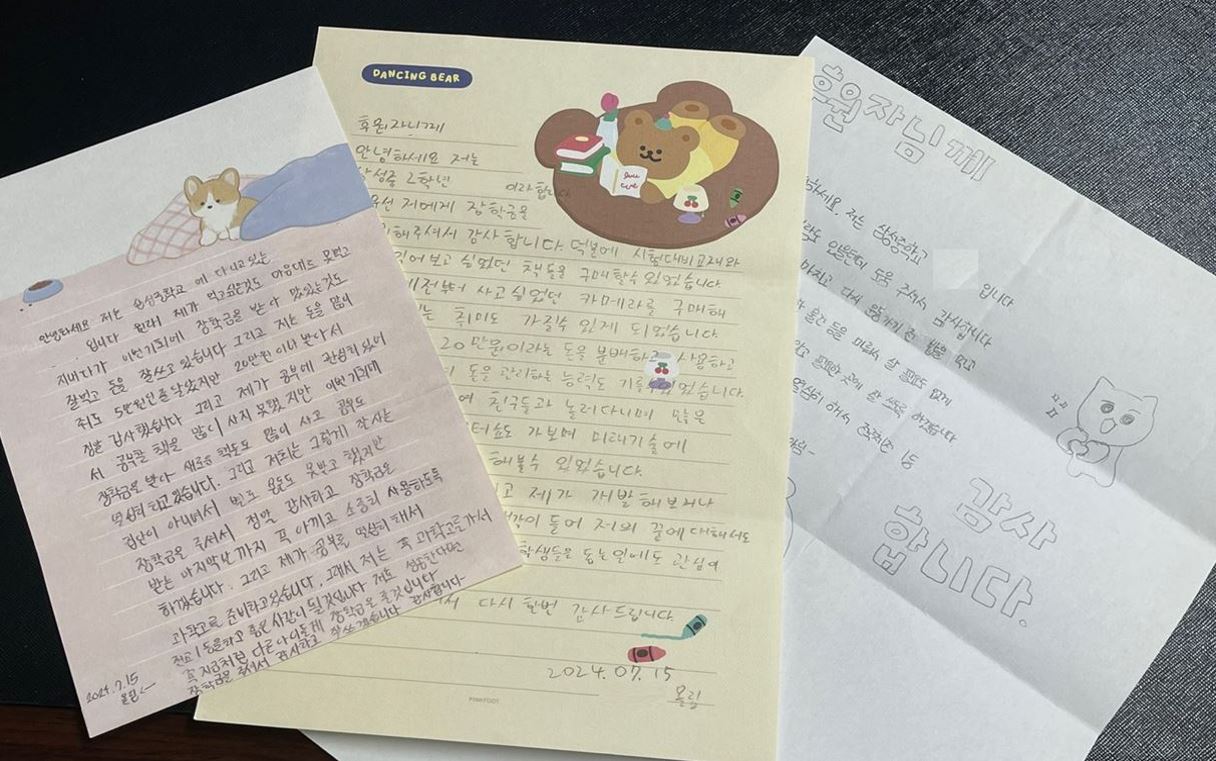 안녕하세요 저는 삼성중학교 에 다니고 있는
입니다 원래 제가 먹고싶은것도 마음대로 못먹고
지내다가 이번기회에 장학금을 받아 맛있는것도
잘먹고 돈을 잘쓰고 있습니다 그리고 저는 돈을 많이
줘도 5만원인줄 알았지만 20만원 이나 받아서
정말 감사했습니다 그리고 제가 공부에 관심이 있어
서 공부할 책을 많이 사지 못했지만 이번기회에
장학금을 받아 새로운 책들도 많이 사고 공부도
열심히 하고있습니다. 그리고 저희는 그렇게 잘 사는
집안이 아니여서 별로 용돈도 못받고 했지만
장학금을 주셔서 정말 감사하고 장학금을
받는 마지막날 까지 꼭 아끼고 소중히 사용하도록
하겠습니다. 그리고 제가 공부를 열심히 해서
과학고를 준비하고있습니다. 그래서 저는 꼭 과학고를 가서
전교1등을하고 좋은 시간이 될것입니다 저도 성공한다면
꼭 지금처럼 다른 아이들에게 장학금을 줄것입니다
장학금을 주셔서 감사하고 잘 쓰겠습니다 감사합니다-
2024.7.15
올림-
DANCING BEAR
후원자님께
안녕하세요 저는
삼성중 2학년 이라 합니다
우선 저에게 장학금을
해주셔서 감사합니다. 덕분에 시험대비교재와
읽어보고 싶었던 책들을 구매할수 있었습니다.
예전부터 사고 싶었던 카메라를 구매해
취미도 가질수 있게 되었습니다.
20만원이라는 돈을 분배하고 사용하고
돈을 관리하는 능력도 기를수 있었습니다.
친구들과 놀러다니며
도 가보며 미래기술에
해볼수 있었습니다.
제가 개발해보거나
생각이 들어 저의 꿈에대해서도
학생들을 돕는일에도 관심이
다시 한번 감사드립니다.
2024.07.15
올림
PINKFOOT
후원자님께
안녕하세요. 저는 삼성중학교 입니다
도움 주셔서 감사합니다
다시
돈을
곳에 잘 쓰도록 하겠습니다
열심히 하셔
감사
합니다.